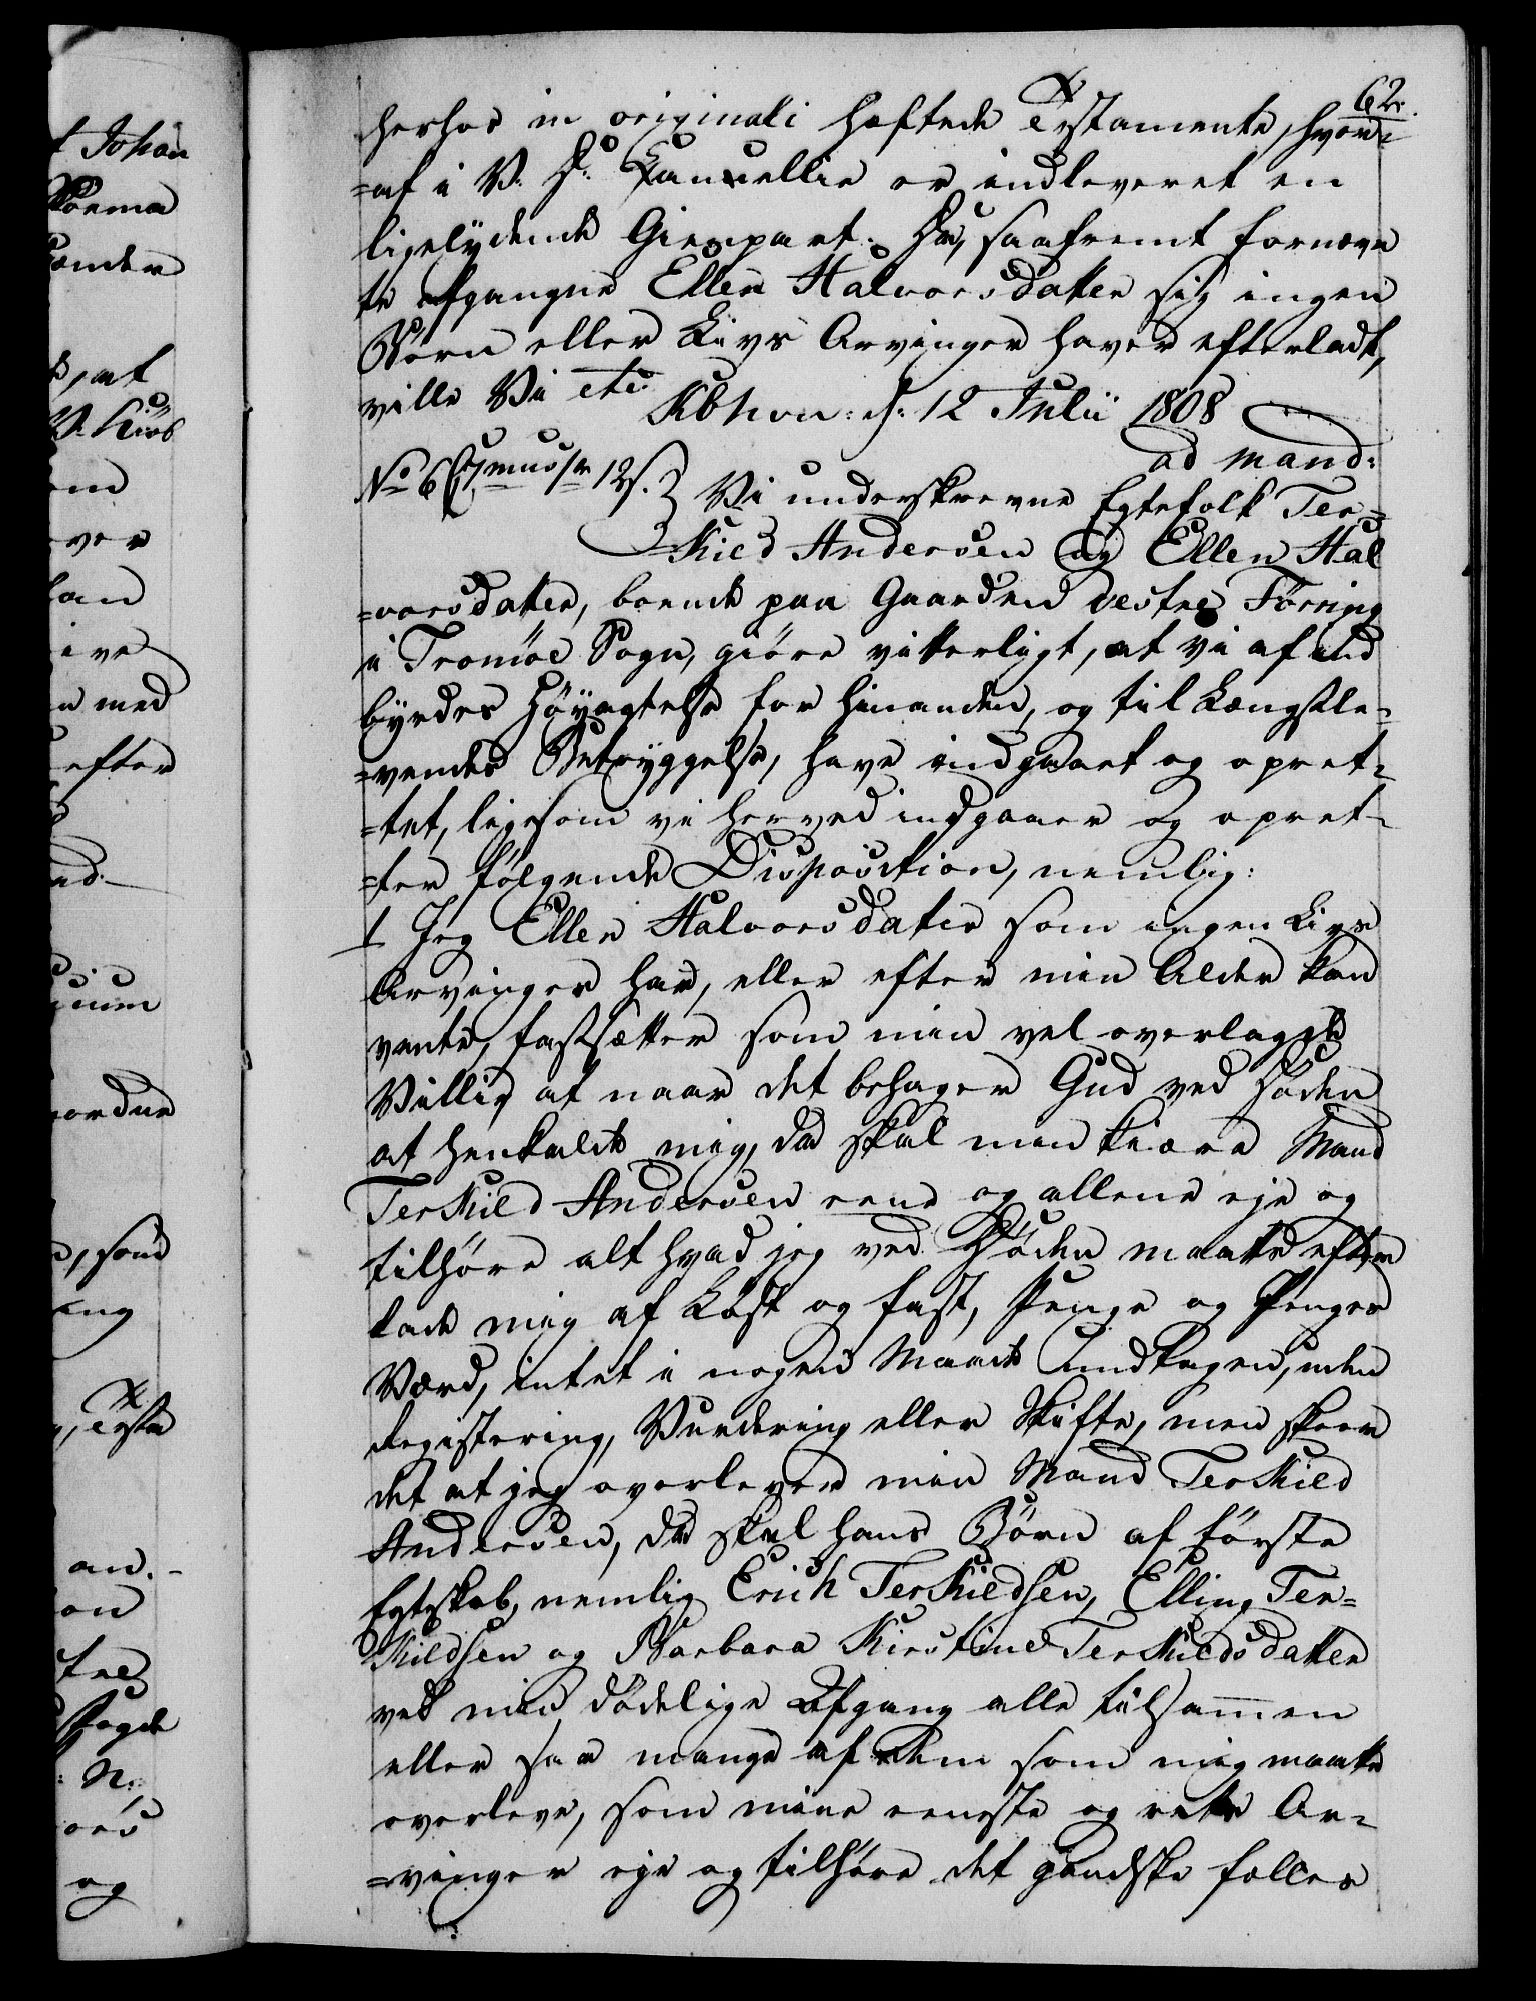 62.
herhos in originali hæftede Testamente, hvor-
=af i V: D: Cancellie er indleveret en
ligelydende Gienpart. Da, saafremt fornævn
te afgangne Ellen Halvorsdatter sig ingen
Børn eller Livs Arvinger haver efterladt,
ville Vi etc:
Kbhvn: d: 12 Julii 1808
ad mand:
No 6 12 s. Vi underskrevne Egtefolk Ter=
Kild Andersen og Ellen Hal
=vorsdatter, boende paa Gaarden vestre Törring
i Tromöe Sogn, giöre vitterligt, at vi af ind
byrdes Höyagtelse for hinanden, og til Længstle-
=vendes Betryggelse, have indgaaet og opret-
=tet, ligesom vi herved indgaaer og opret-
=ter følgende Disposition, nemlig:
1 Jeg Ellen Halvorsdatter som ingen Livs
Arvinger har, eller efter min Alder kan
vente, fastsætter som min vel overlagde
Villie at naar det behager Gud ved Döden
at henkalde mig, da skal min kiære Mand
Terkild Andersen eene og allene eje og
tilhöre alt hvad jeg ved Döden maatte efter
lade mig af Löst og fast, Penge og Penges
Værd, intet i nogen Maade undtagen, uden
Registering, Vurdering eller Skifte, men skeer
det at jeg overlever min Mand Terkild
Andersen, da skal hans Börn af förste
Egteskab, nemlig Erich Terkildsen, Elling Ter=
Kildsen og Barbara Kirstine Terkildsdatter
ved min dödelige Afgang alle tilsammen
eller saa mange af dem som mig maatte
overleve, som mine eeneste og rette Ar-
=vinger eje og tilhöre det gandske fælles